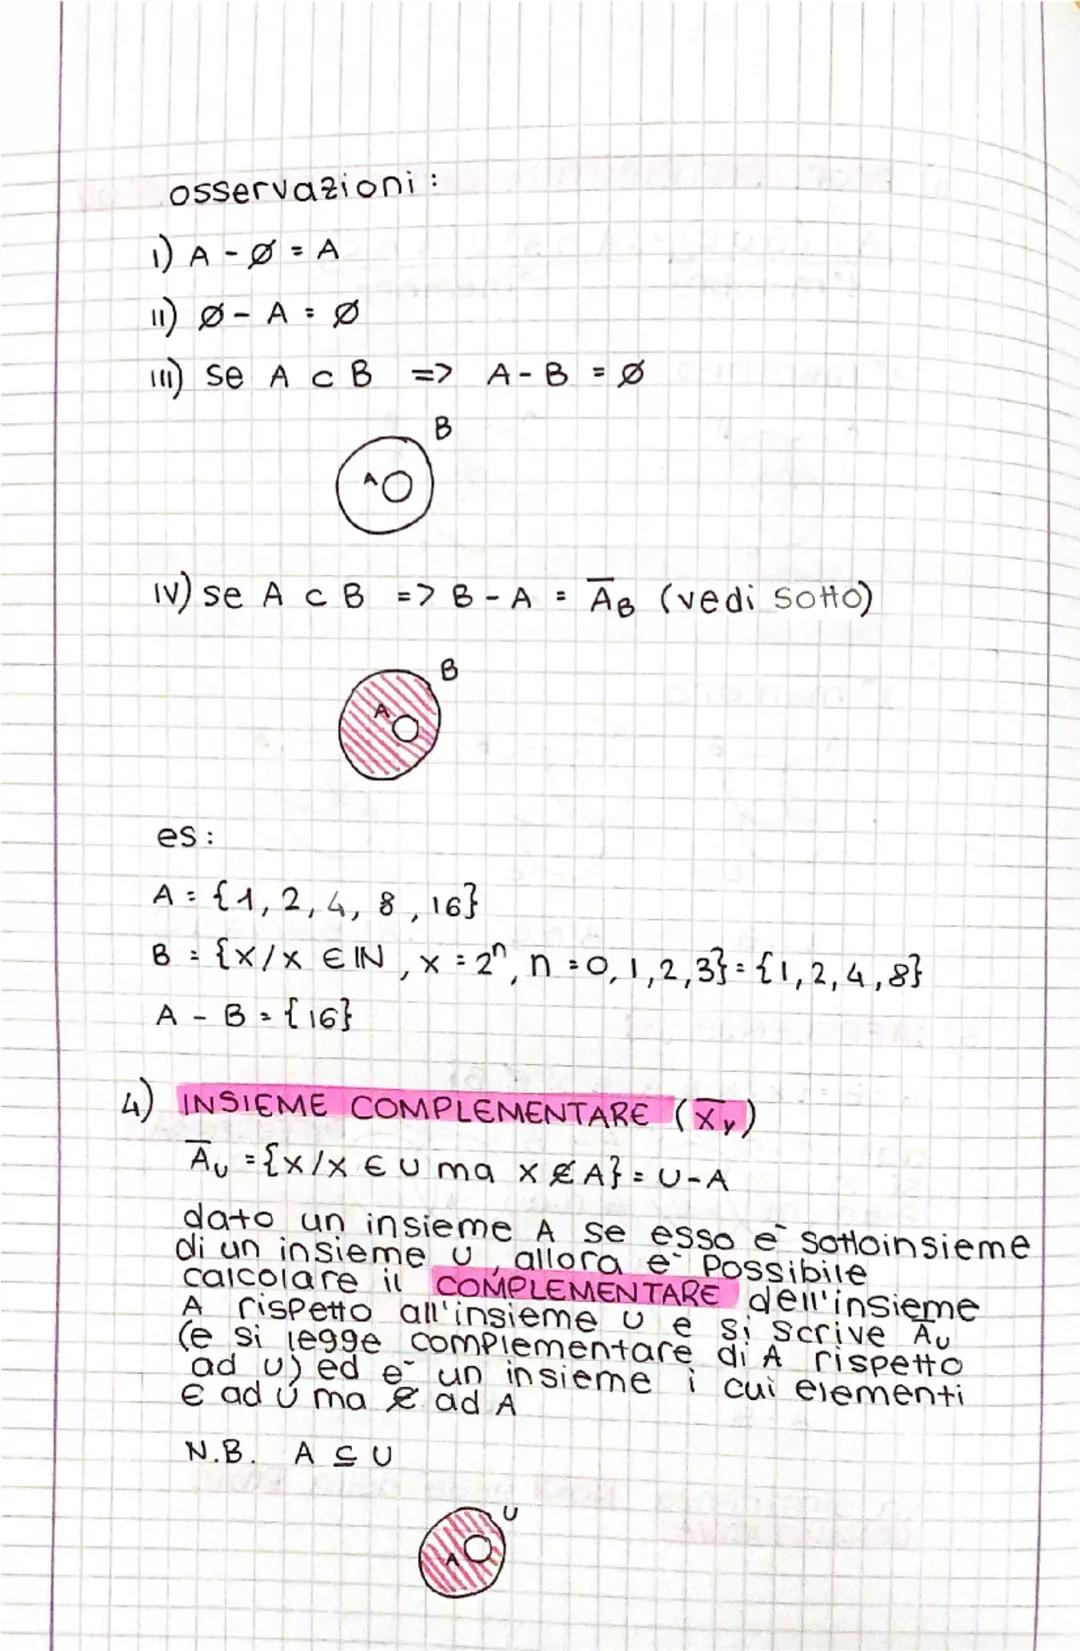 osservazioni :
I) A - Ø = A
II) Ø - A = Ø
III) se A ⊂ B => A - B = Ø
B
A
IV) se A ⊂ B => B - A = A̅B (vedi sotto)
B
A
es :
A = {1, 2, 4, 8, 16}
B = {x/x ∈ IN, x = 2ⁿ, n = 0, 1, 2, 3} = {1, 2, 4, 8}
A - B = {16}
4) INSIEME COMPLEMENTARE (X̅y)
A̅u = {x/x ∈ U ma x ∉ A} = U - A
dato un insieme A se esso e- sottoinsieme
di un insieme U, allora e- possibile
calcolare il COMPLEMENTARE dell'insieme
A rispetto all'insieme U e si scrive A̅u
(e si legge complementare di A rispetto
ad U) ed e- un insieme i cui elementi
∈ ad U ma ∉ ad A
N.B. A ⊆ U
U
A